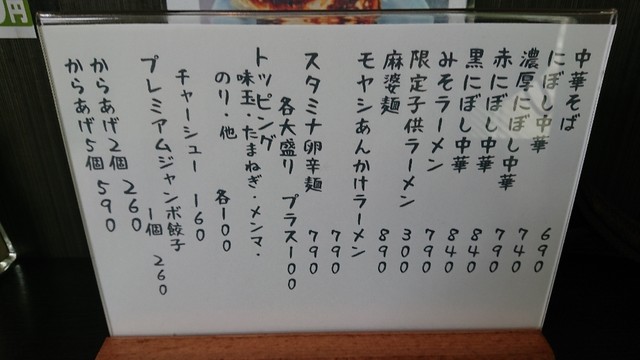 中華そば 690
にぼし中華 740
濃厚にぼし中華 790
赤にぼし中華 840
黒にぼし中華 840
みそラーメン 790
限定子供ラーメン 300
麻婆麺 890
モヤシあんかけラーメン 790
スタミナ卵辛麺 790
各大盛り プラス100
トッピング
味玉・たまねぎ・メンマ・
のり・他 各100
チャーシュー 160
プレミアムジャンボ餃子
1個 260
からあげ2個 260
からあげ5個 590
0円